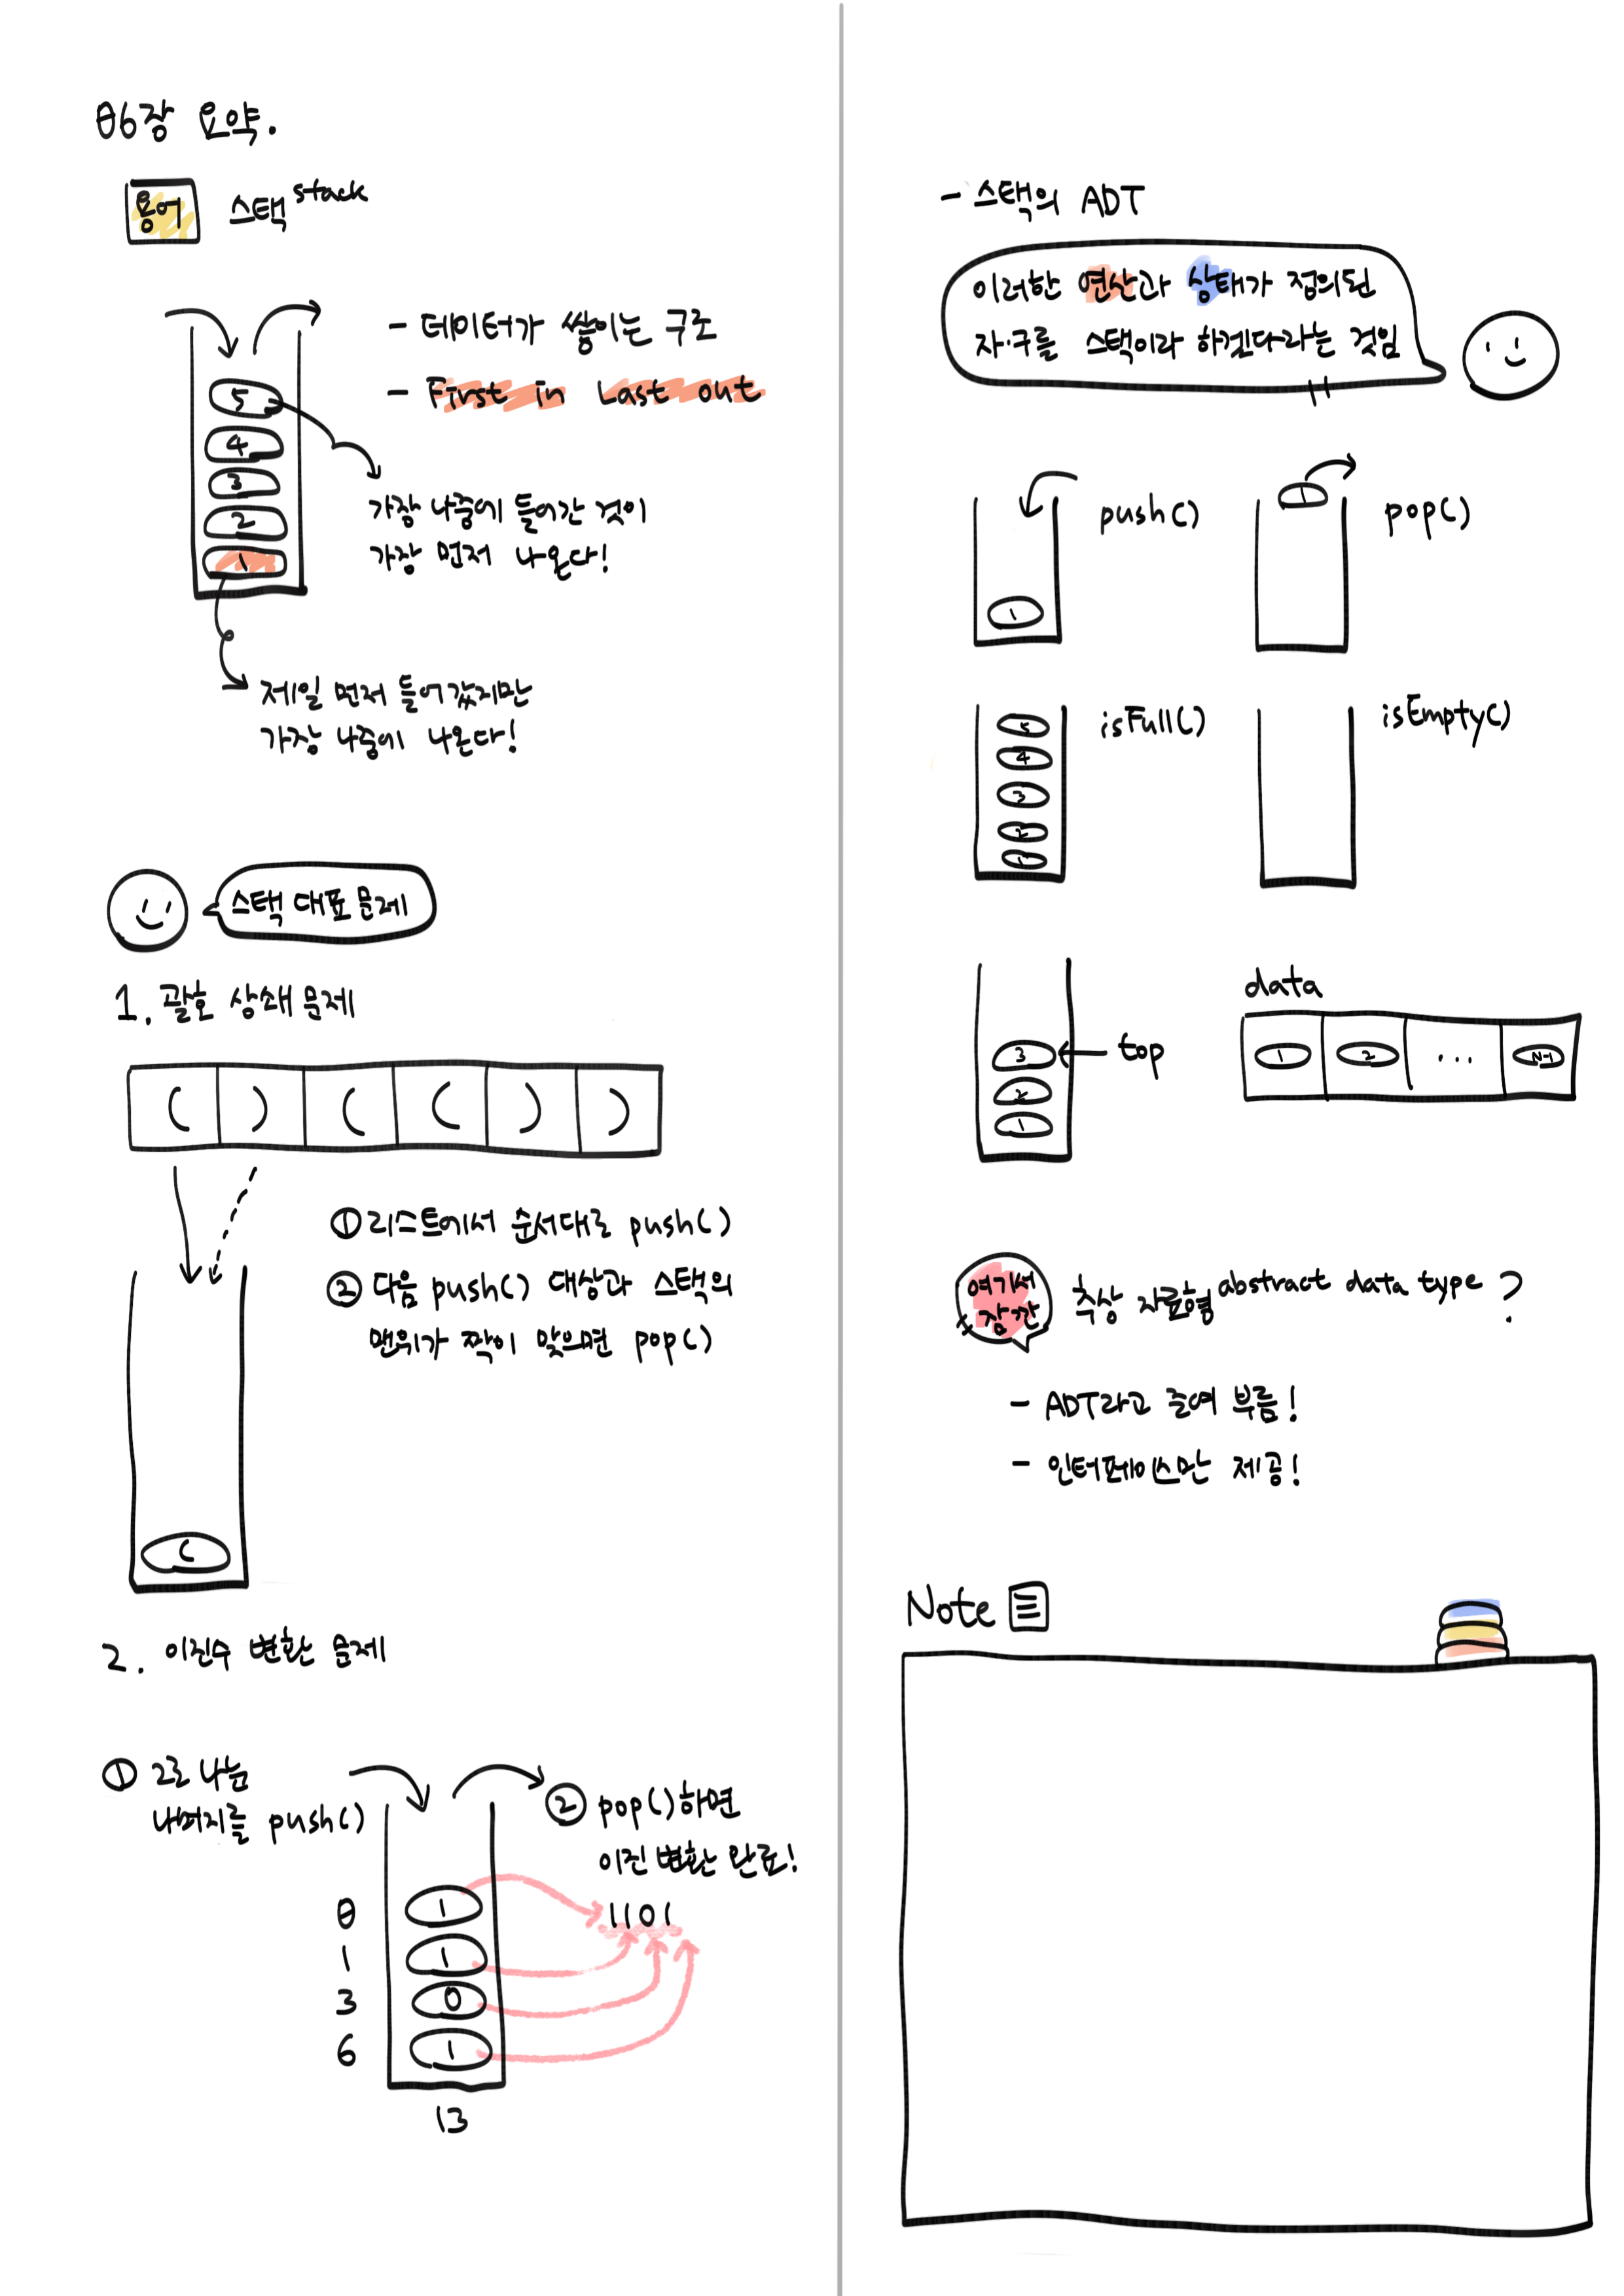 06장 요약.
용어 스택 stack
- 데이터가 쌓이는 구조
- First in Last out
5
4
3
2
1
가장 나중에 들어간 것이
가장 먼저 나온다!
제일 먼저 들어갔지만
가장 나중에 나온다!
스택 대표 문제
1. 괄호 상쇄 문제
( ) ( ( ) )
① 리스트에서 순서대로 push()
② 다음 push() 대상과 스택의
맨위가 짝이 맞으면 pop()
(
2. 이진수 변환 문제
① 2로 나눈
나머지를 push()
② pop()하면
이진 변환 완료!
1101
0 1
1 1
3 0
6 1
13
- 스택의 ADT
이러한 연산과 상태가 정의된
자·구를 스택이라 하겠다라는 것임
push()
1
pop()
1
isFull()
5
4
3
2
1
isEmpty()
3 top
2
1
data
1 2 ... N-1
여기서
잠깐
추상 자료형 abstract data type ?
- ADT라고 줄여 부름!
- 인터페이스만 제공!
Note